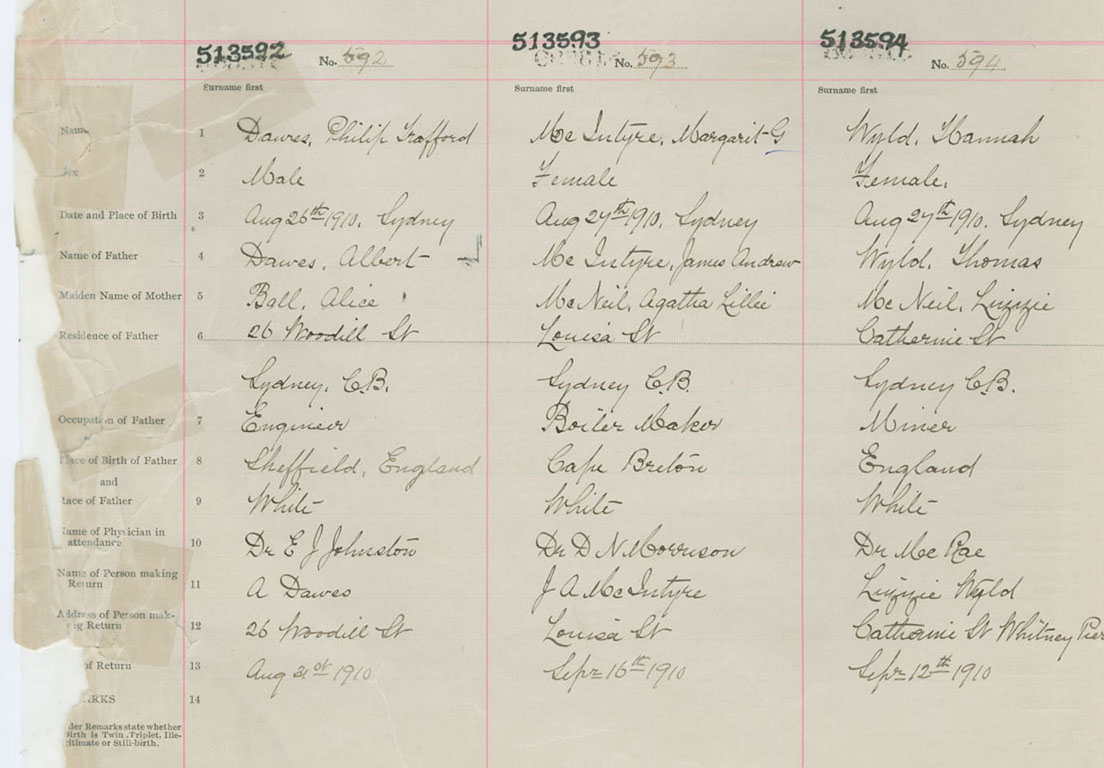 513592 No. 592 513593 No. 593 513594 No. 594
Surname first Surname first Surname first
Name 1 Dawes, Philip Trafford Mc Intyre, Margarit G Wyld, Hannah
Sex 2 Male Female Female.
Date and Place of Birth 3 Aug 26th 1910. Sydney Aug 27th 1910. Sydney Aug 27th 1910. Sydney
Name of Father 4 Dawes, Albert Mc Intyre, James Andrew Wyld, Thomas
Maiden Name of Mother 5 Ball, Alice Mc Neil, Agatha Lillie Mc Neil, Lizzie
Residence of Father 6 26 Woodill St Louisa St Catherine St
Sydney, C.B. Sydney C.B. Sydney C.B.
Occupation of Father 7 Engineer Boiler Maker Miner
lace of Birth of Father 8 Sheffield, England Cape Breton England
and
ace of Father 9 White White White
ame of Physician in
attendance 10 Dr E J Johnston Dr D N Morrison Dr Mc Rae
Name of Person making
Return 11 A Dawes J A Mc Intyre Lizzie Wyld
Address of Person mak-
ng Return 12 26 Woodill St Louisa St Catharine St Whitney Pier
of Return 13 Aug 31st 1910 Sept 16th 1910 Sept 12th 1910
RKS 14
der Remarks state whether
Birth is Twin, Triplet, Ille-
gitimate or Still-birth.